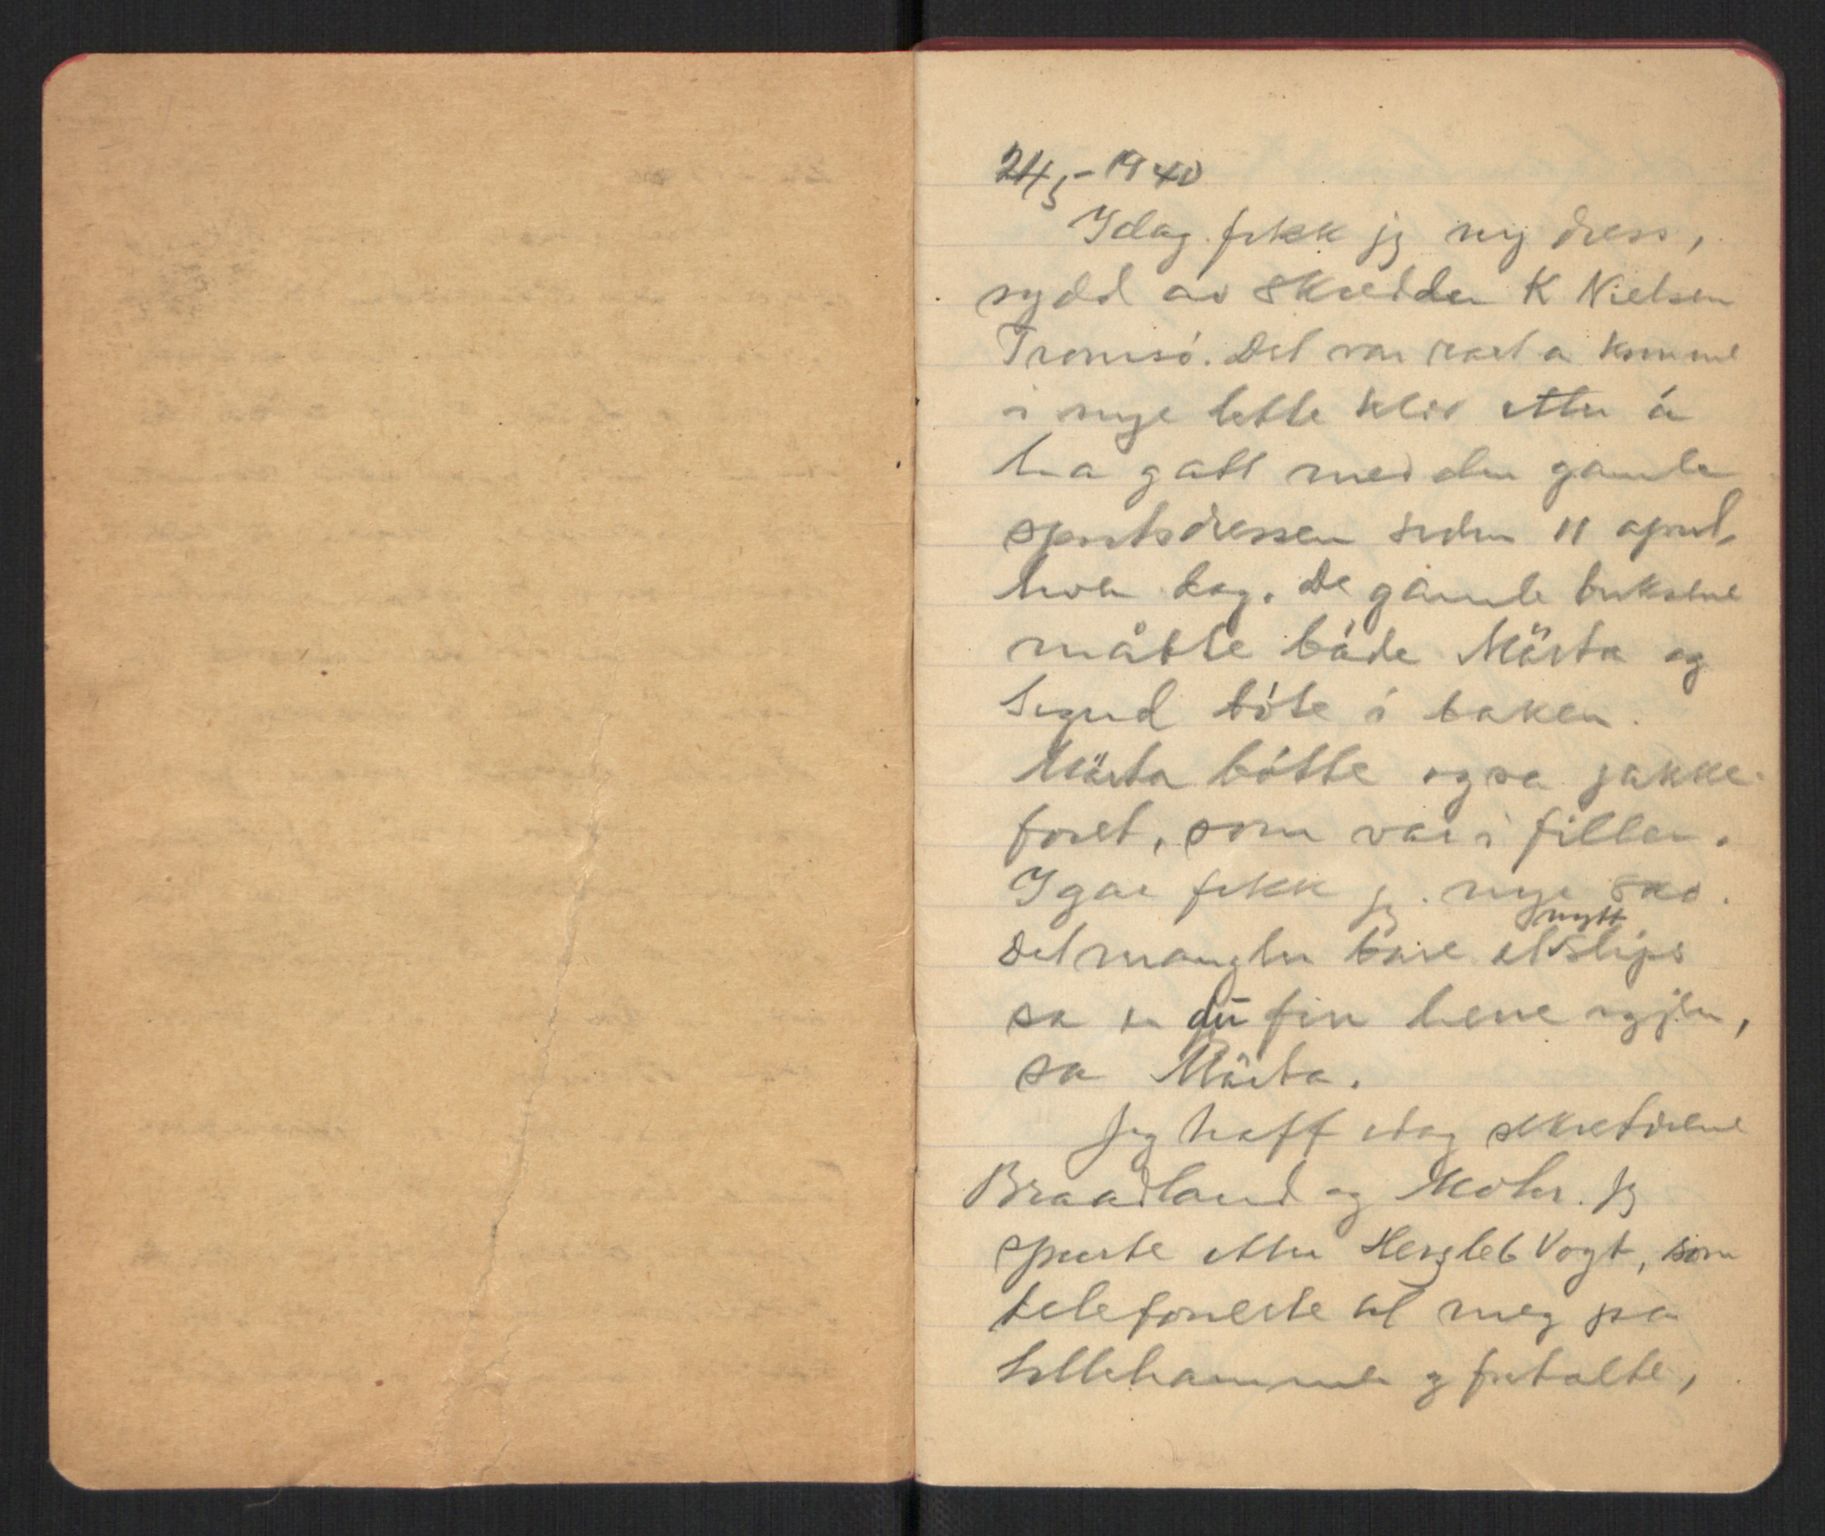 24/5-1940
Idag fikk jg ny dress,
sydd av Skredder K Nielsen
Tromsö. Det var rart a komme
i nye lette klær etter å
ha gatt med den gamle
sportsdressen siden 11 april
hver dag. De gamle buksene
måtte både Märta og
Sigrid böte i baken.
Märta bötte ogsa jakke-
foret, som var i filler.
Igar fikk jg nye sko.
Det mangler bare et nytt slips
sa er du fin herre igjen,
sa Märta.
Jeg traff idag sekretærene
Braadland og Mohr. Jg
spurte etter Hersleb Vogt, som
telefonerte til meg pa
Lillehammer og fortalte,